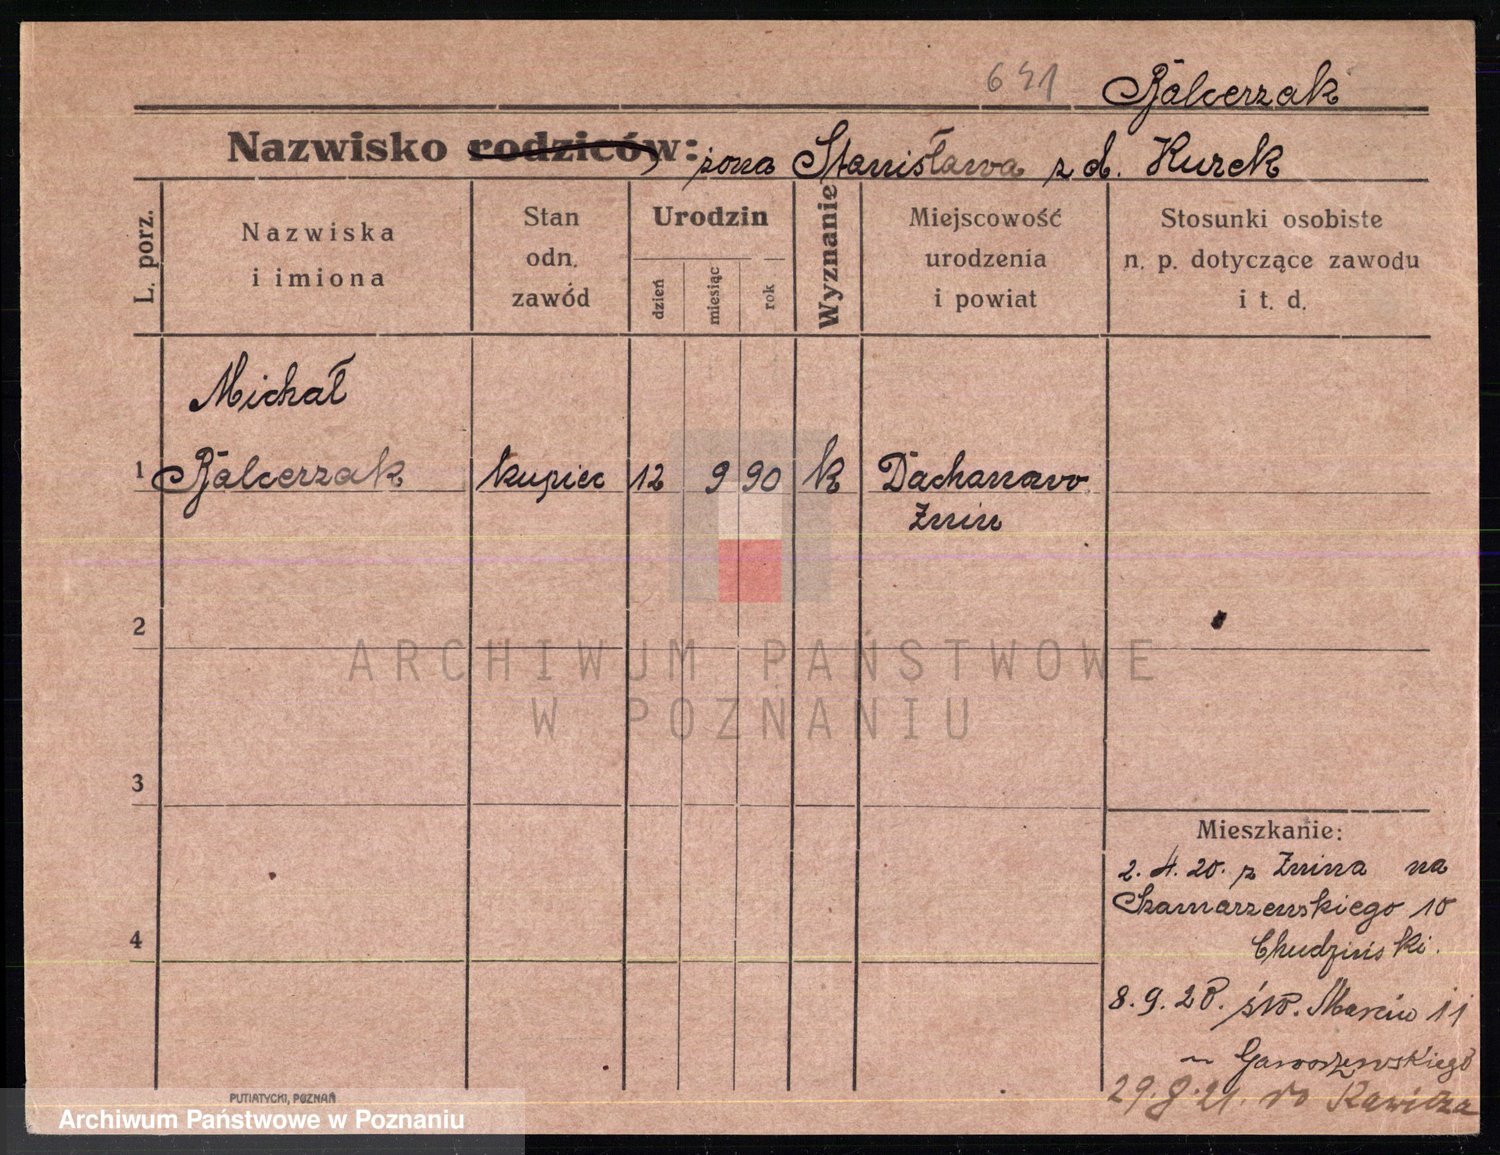 641 Balcerzak
Nazwisko rodziców: żona Stanisława z d. Kurek
L. porz.
Nazwiska
i imiona
Stan
odn.
zawód
Urodzin
dzień
miesiąc
rok
Wyznanie
Miejscowość
urodzenia
i powiat
Stosunki osobiste
n. p. dotyczące zawodu
i t. d.
Michał
1 Balcerzak kupiec 12 9 90 k Dachanowo
Żnin
2
3
4
Mieszkanie:
2.4.20. z Żnina na
Szamarzewskiego 10
Chudziński.
8.9.20. św. Marcin 11
Gawroszewskiego
29.8.21. do Rawicza
ARCHIWUM PAŃSTWOWE
W POZNANIU
PUTIATYCKI, POZNAŃ
Archiwum Państwowe w Poznaniu